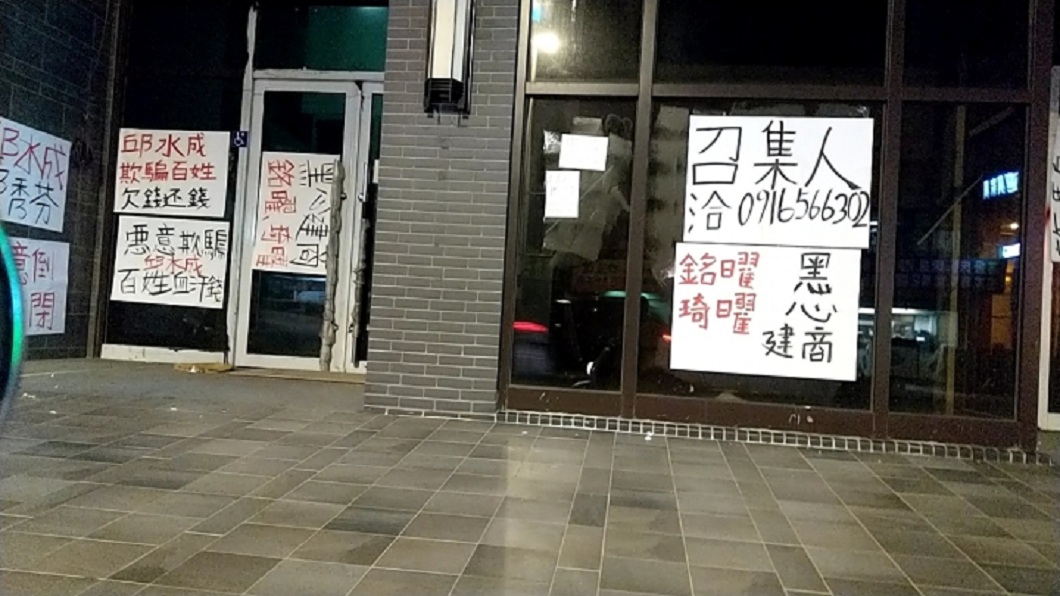 邱水成
欺騙百姓
欠錢还錢
悪意欺騙
邱水成
百姓血汗錢
水成
秀芬
意倒
閉
銘曜
琦曜
黑心建商
召集人
洽0916566302
銘曜
琦曜
黑心
建商